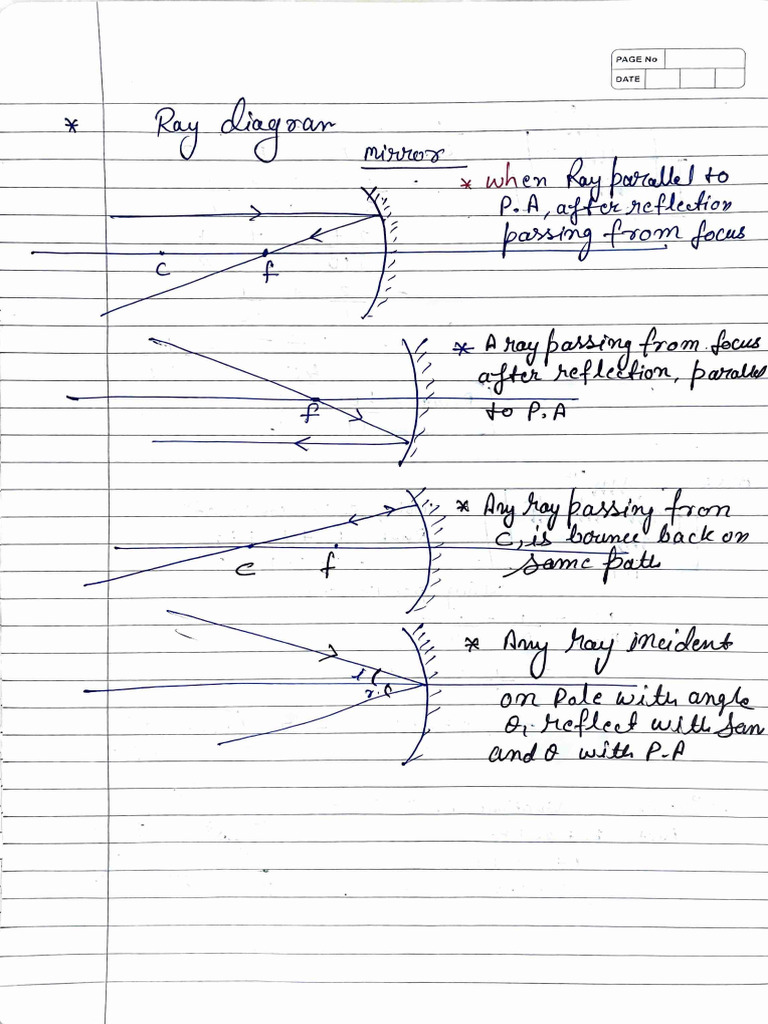 PAGE No
DATE
* Ray diagran
mirror
* when Ray parallel to
P.A, after reflection
passing from focus
c f
* A ray passing from focus
after reflection, parallel
to P.A
f
* Any ray passing from
C, is bounce back on
same path
c f
* Any ray incident
on Pole with angle
θ, reflect with Sam
and θ with P.A
i
r